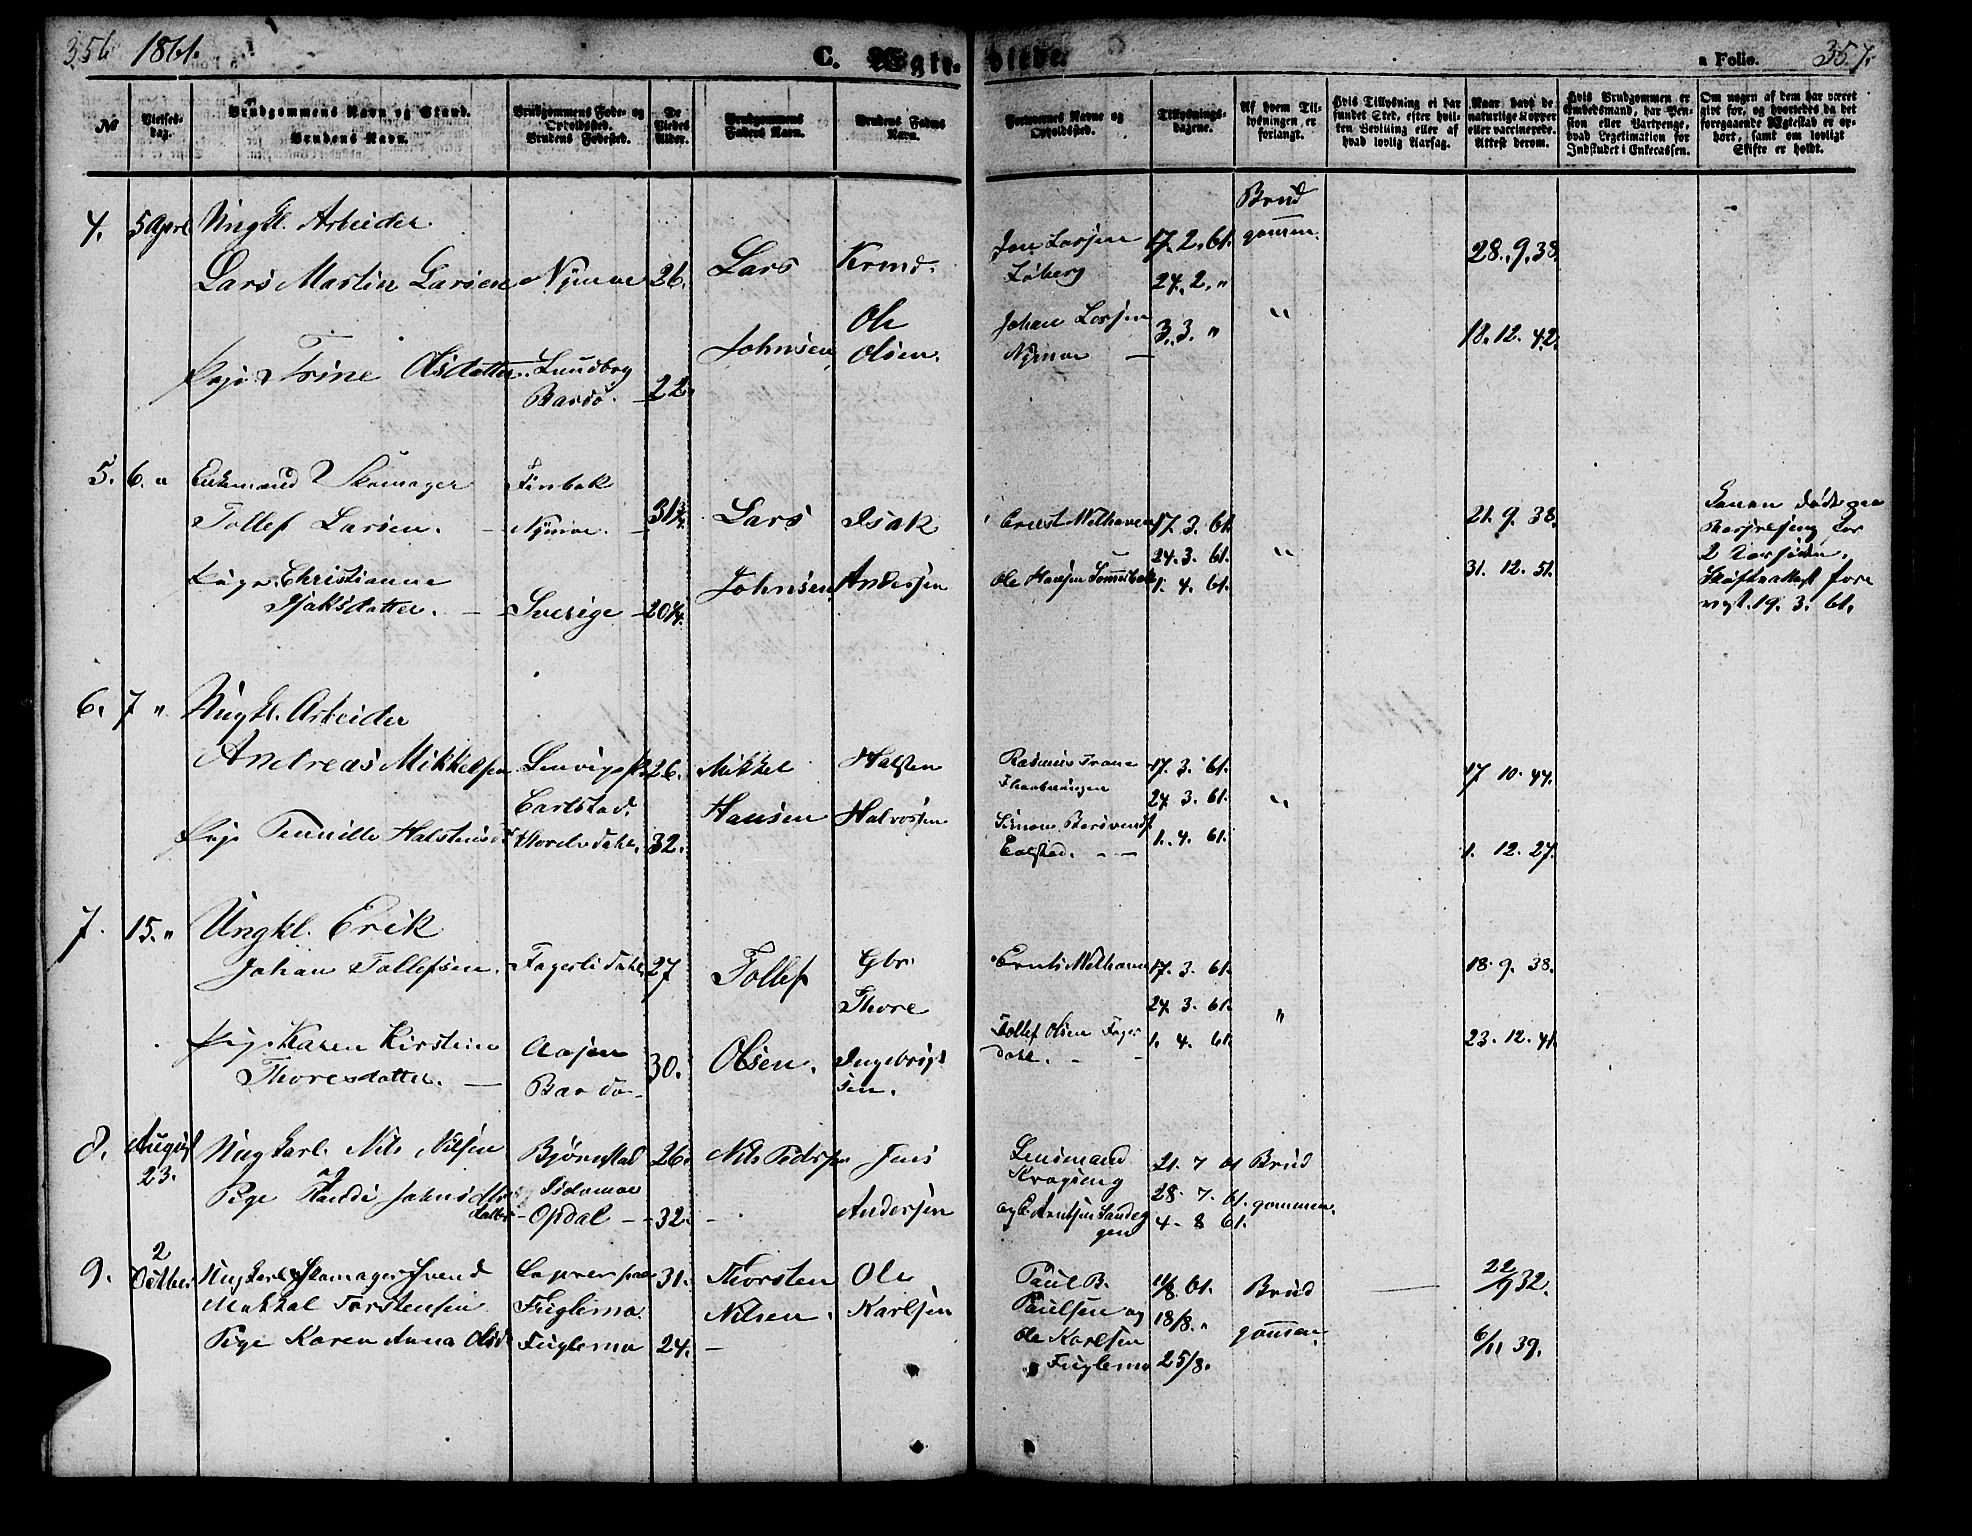 356 1861. C. Ægte- viede. a Folio. 357.
№
Vielses-
dag.
Brudgommens Navn og Stand.
Brudens Navn.
Brudgommens Føde- og
Opholdssted.
Brudens Fødested.
De
Viedes
Alder.
Brudgommens
Faders Navn.
Brudens Faders
Navn.
Forlovernes Navne og
Opholdssted.
Tillysnings-
dagene.
Af hvem Til-
lysningen er
forlangt.
Hvis Tillysning ei har
fundet Sted, efter hvil-
ken Bevilning eller af
hvad lovlig Aarsag.
Naar havt de
naturlige Kopper
eller vaccinerede.
Attest derom.
Hvis Brudgommen er
Embedsmand, har Pen-
sion eller Vartpenge,
hvad Legitimation for
Indskudet i Enkecassen.
Om nogen af dem har været
gift før, og hvorledes da det
foregaaende Ægteskab er op-
hørt, samt om lovligt
Skifte er holdt.
4. 5 April Ungkl. Arbeider.
Lars Martin Larsen Nymoe 26. Lars
Pige Trine Olsdatter Lundberg
Bardo. 22. Johnsen Ole
Olsen.
Jon Larsen
Løberg
Johan Larsen
Nymoe
17. 2. 61.
24. 2. "
3. 3. "
Brud
gommen.
"
28. 9. 38.
18. 12. 42.
5. 6. " Enkemand Skomager
Tollef Larsen. Nymoe. 31¾. Lars Isak
Pige Christianne
Isaksdatter. Sverige 20¼. Johnsen Andersen
Ernst Welhaven
Ole Hansen
17. 3. 61.
24. 3. 61.
1. 4. 61.
"
21. 9. 38.
31. 12. 51.
Konen døde
for
2 Aar siden.
vist. 19. 3. 61.
6. 7 " Ungkl. Arbeider
Andreas Mikkelsen Lenvig 26. Mikkel Halsten
Carlstad.
Pige Pernille Halstensd. 32. Hansen Halvorsen
Rasmus Trane
17. 3. 61.
24. 3. 61.
1. 4. 61.
"
17 10. 44.
1. 12. 27.
7. 15. " Ungkl. Erik
Johan Tollefsen. Fagerlidahl 27 Tollef
Thore
Pige Karen Kirstine
Thoresdatter.
Bardo 30. Olsen. Ingebrigt
sen.
Ernst Welhaven
Tollef Olsen Fager
dahl.
17. 3. 61.
24. 3. 61.
1. 4. 61.
"
18. 9. 38.
23. 12. 41.
8. August
23.
Ungkarl. Nils Nilsen Bjørnstad 26. Nils Pedersen Jens
Pige Randi
datter Opdal 32. Andersen
Lensmand
Krogseng
21. 7 61
28. 7. 61.
4 - 8 61.
Brud
gommen.
9. 2
Octber
Ungkarl Skomager Svend
Torstensen Fuglemo. 31. Thorsten Ole
Nilsen. Karlsen
Pige Karen Anna Olsd. Fuglemo 24.
Paul B.
Paulsen og
Ole Karlsen
Fuglemo
11/8 61.
18/8. "
25/8.
Brud
gommen.
22/9 32.
6/11 39.